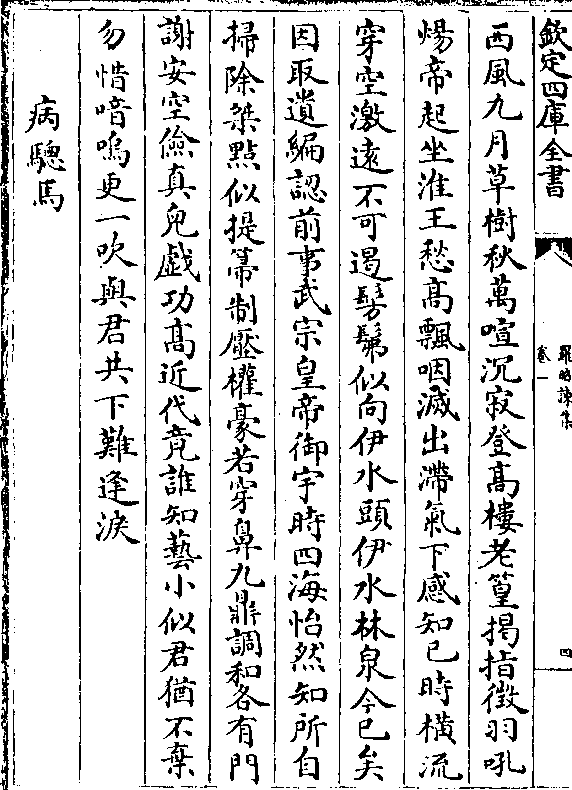 欽定四庫全書
羅昭諫集
卷一
四
西風九月草樹秋萬喧沉寂登高樓老篁揭指徵羽吼
煬帝起坐淮王愁高飄咽滅出滯氣下感知已時横流
穿空激逺不可遏髣髴似向伊水頭伊水林泉今已矣
因取遺編認前事武宗皇帝御宇時四海怡然知所自
掃除桀黠似提箒制壓權豪若穿鼻九鼎調和各有門
謝安空儉真兒戲功高近代竟誰知藝小似君猶不棄
勿惜喑嗚更一吹與君共下難逢淚
病驄馬